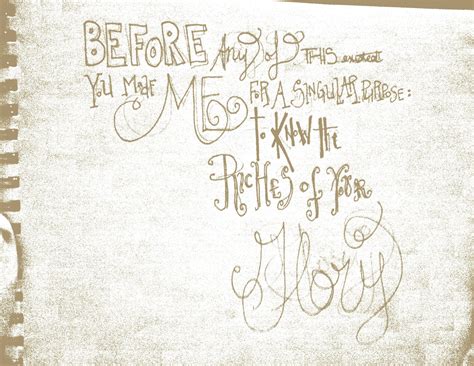 BEFORE Any of THIS existed
You MaDe ME FOR A SINGULAR PURPOSE:
To KNOW the
RICHES of YOUR
Glory